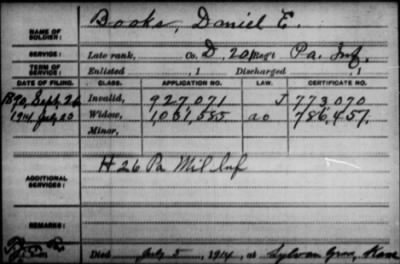 NAME OF SOLDIER: Books, Daniel E.
SERVICE: Late rank, Co. D, 201 Reg't Pa. Inf.
TERM OF SERVICE: Enlisted , 1 Discharged , 1
DATE OF FILING. CLASS. APPLICATION NO. LAW. CERTIFICATE NO.
1890, Sept. 26 Invalid, 927,071 J 773,070
1914 July 20 Widow, 1,031,585 a o 786,457.
Minor,
ADDITIONAL SERVICES: H 26 Pa Mil Inf
REMARKS:
Died July 5, 1914, at Sylvan Grov, Kans